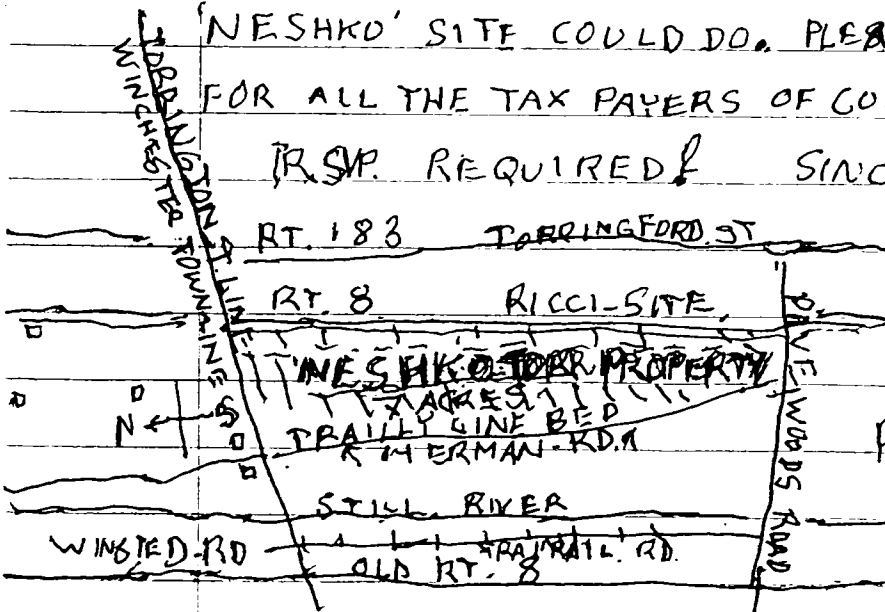 'NESHKO' SITE COULD DO. PLEA
FOR ALL THE TAX PAYERS OF CO
R.S.V.P. REQUIRED! SINC
TORRINGTON T. LINE
WINCHESTER TOWN LINE
RT. 183 TORRINGFORD. ST
RT. 8 RICCI-SITE.
'NESHKO-TORR PROPERTY
ACRES
N S
LINE BED
HERMAN-RD.
STILL RIVER
WINSTED-RD RAIL. RD.
OLD RT. 8
WOODS ROAD